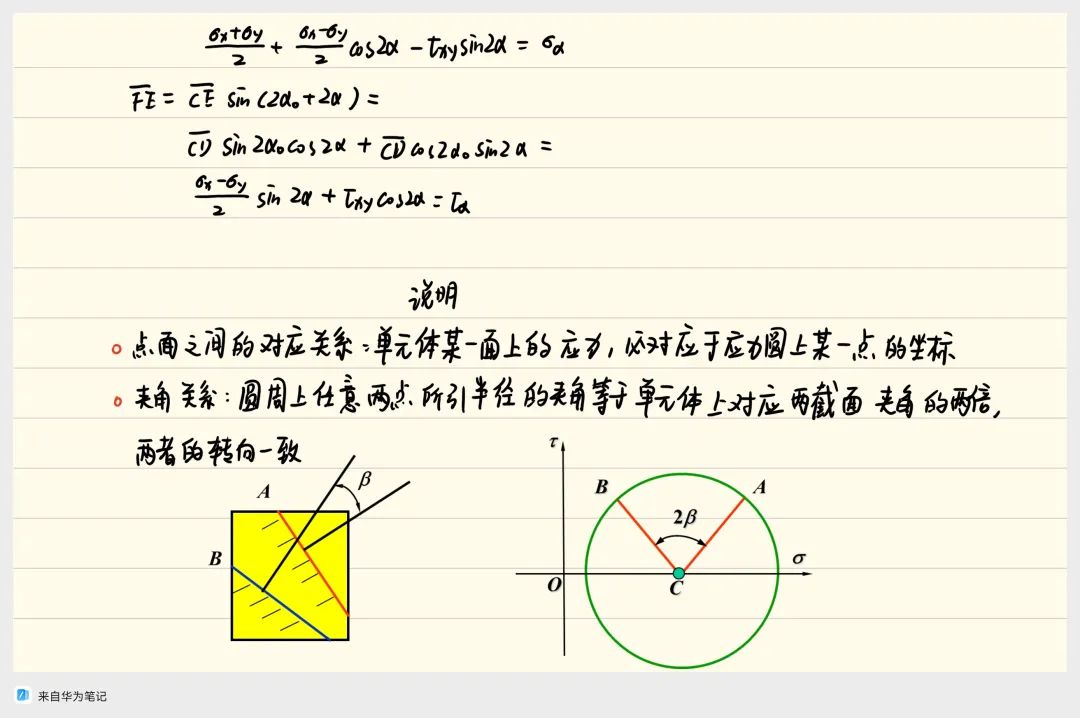 σx+σy/2 + σx-σy/2 cos2α - τxy sin2α = σα
FE = CE sin(2α₀+2α) =
CD sin2α₀cos2α + CD cos2α₀sin2α =
σx-σy/2 sin2α + τxy cos2α = τα
说明
点面之间的对应关系:单元体某一面上的应力,必对应于应力圆上某一点的坐标
夹角关系:圆周上任意两点所引半径的夹角等于单元体上对应两截面夹角的两倍,
两者的转向一致
A
β
B
τ
B
A
2β
σ
O
C
来自华为笔记